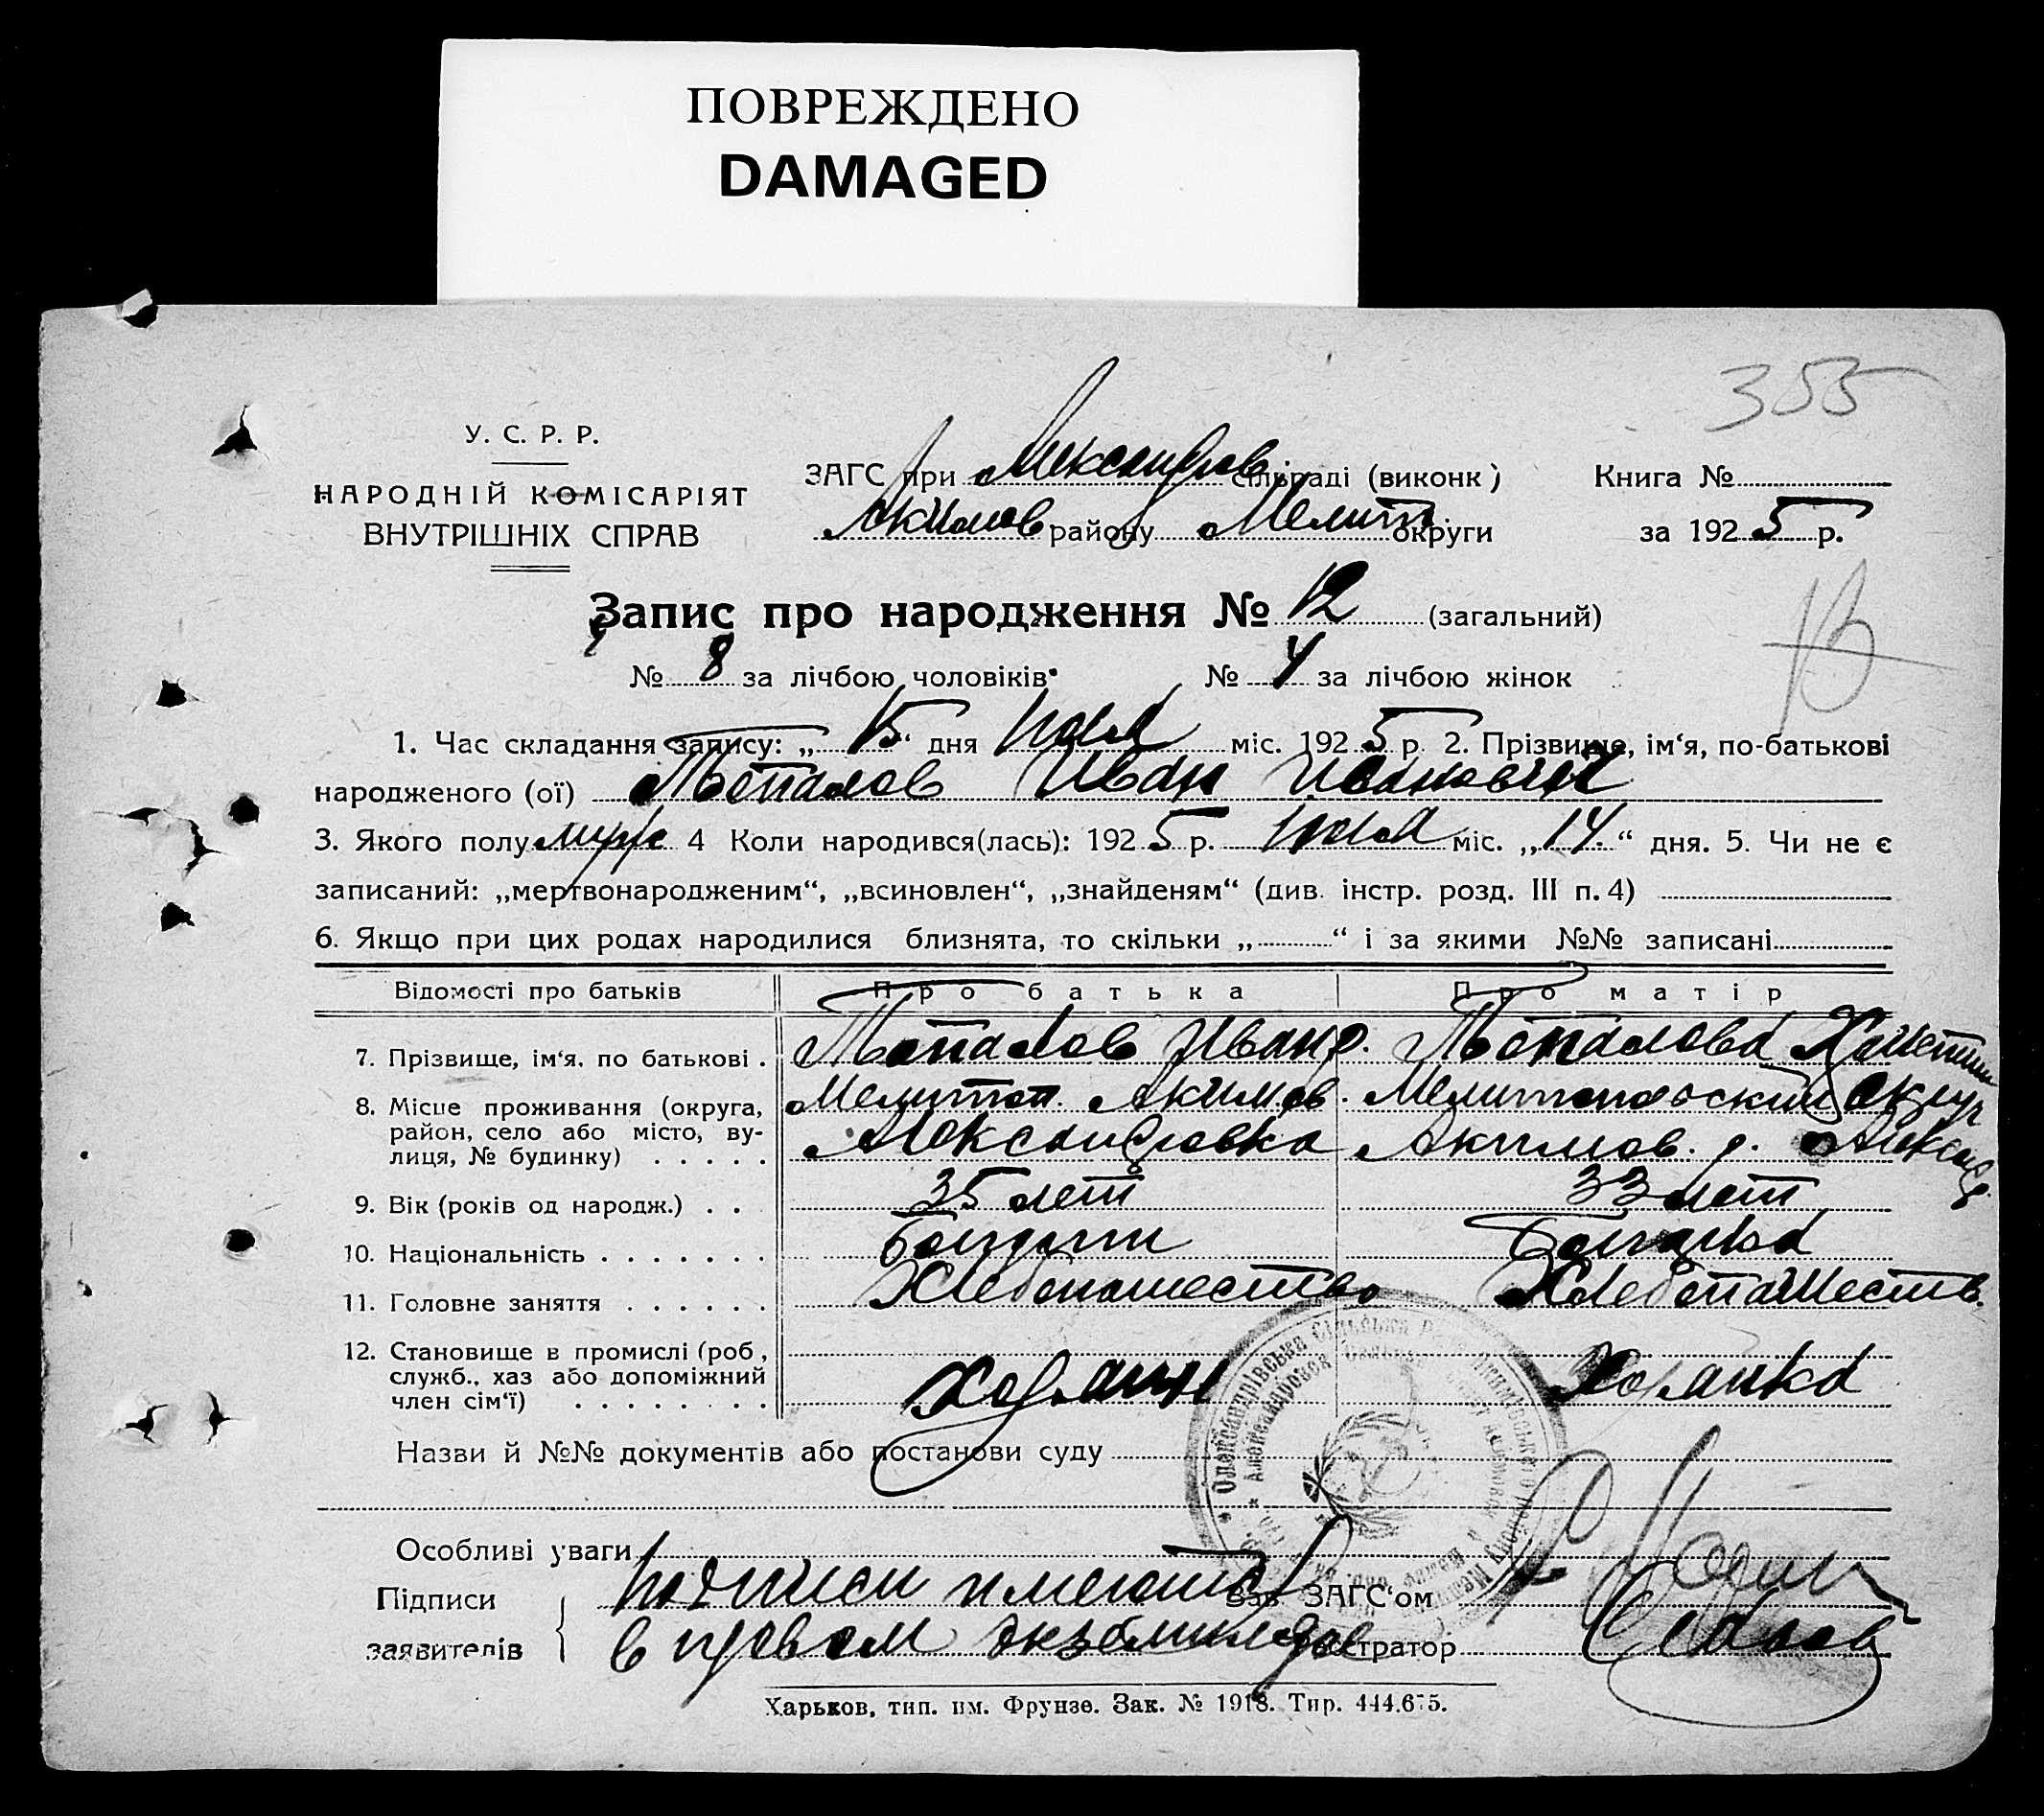 ПОВРЕЖДЕНО
DAMAGED
355
У. С. Р. Р.
НАРОДНІЙ КОМІСАРІЯТ
ВНУТРІШНІХ СПРАВ
ЗАГС при Александров сільраді (виконк)
Акимов району Мелит. округи
Книга №
за 1925 р.
Запис про народження № 12 (загальний)
№ 8 за лічбою чоловіків № 4 за лічбою жінок
1. Час складання запису: „15“ дня мая міс. 1925 р. 2. Прізвище, ім‘я, по-батькові
народженого (ої) Топалов Иван Иванович
3. Якого полу муж 4 Коли народився(лась): 1925 р. мая міс. „14.“ дня. 5. Чи не є
записаний: „мертвонародженим“, „всиновлен“, „знайденям“ (див. інстр. розд. III п. 4)
6. Якщо при цих родах народилися близнята, то скільки „ “ і за якими №№ записані
Відомості про батьків Про батька Про матір
7. Прізвище, ім‘я, по батькові . Топалов Иван Топалова
8. Місце проживання (округа, Мелитоп. Акимов. Мелитопольский округ
район, село або місто, ву- Александровка Акимов. р. Александр.
лиця, № будинку)
9. Вік (років од народж.) . . 35 лет 33 лет
10. Національність Болгарин Болгарка
11. Головне заняття Хлебопашество Хлебопашеств.
12. Становище в промислі (роб,
служб., хаз або допоміжний
член сім‘ї) Хозяин Хозяйка
Назви й №№ документів або постанови суду
Особливі уваги
Підписи подписи имеются Зав ЗАГС‘ом
заявителів в первом экземпляре Реєстратор
Харьков, тип. им. Фрунзе. Зак. № 1918. Тир. 444.675.